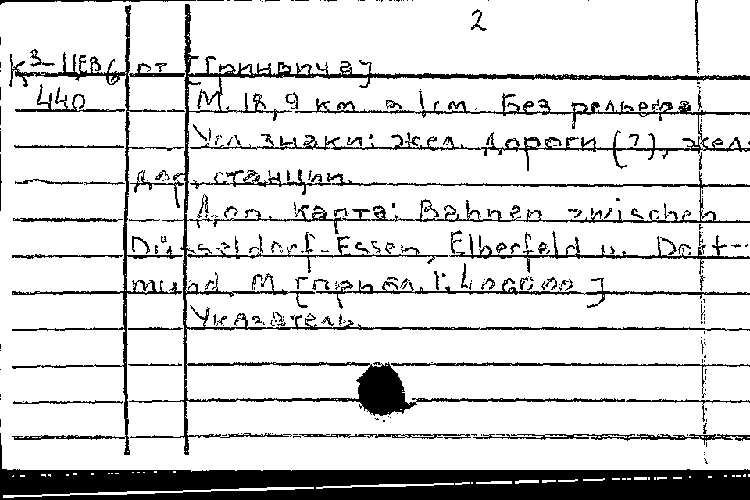 2
К3-ЦЕВ6 от [Гринвича]
440 М. 18,9 км в 1 см. Без рельефа
Усл. знаки: жел. дороги (2), жел.
дор. станции.
Доп. карта: Bahnen zwischen
Düsseldorf-Essen, Elberfeld u. Dort-
mund. М. [прибл. 1:400000]
Указатель.